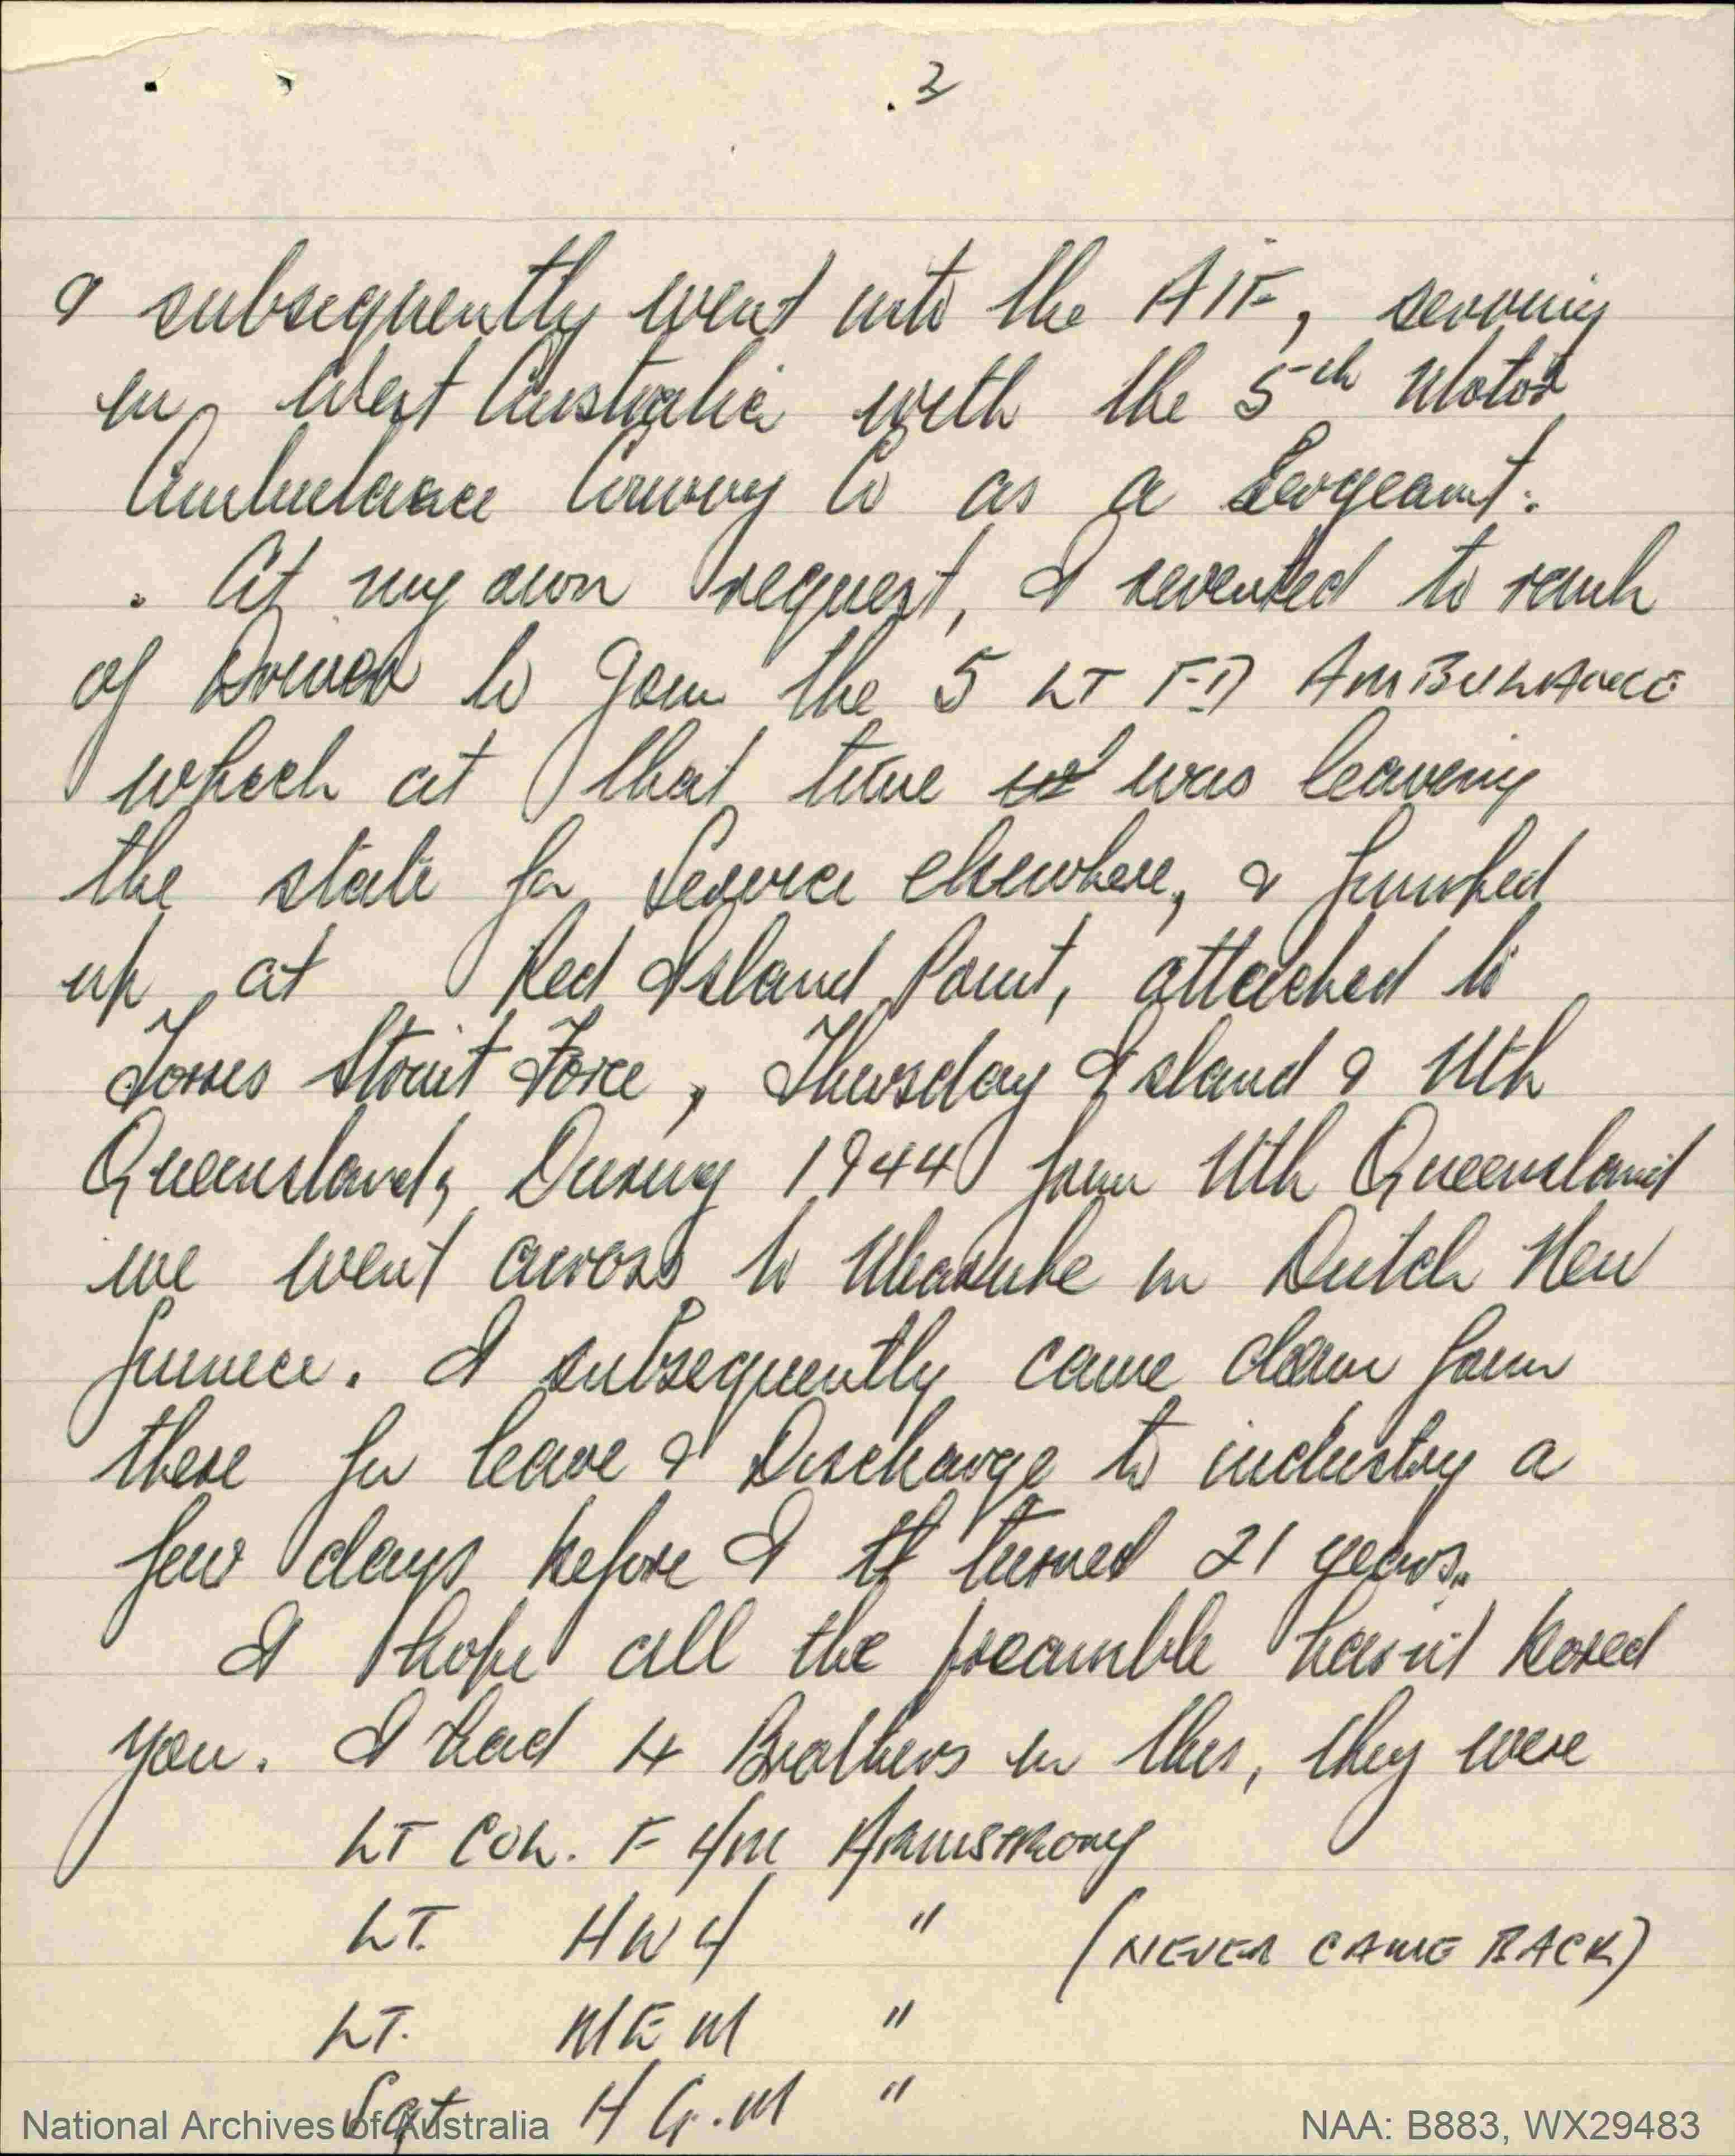 . 2
& subsequently went into the AIF, serving
in West Australia with the 5th Motor
Ambulance Convoy Co as a Sergeant.
. At my own request, I reverted to rank
of Driver to Join the 5 LT FD AMBULANCE
which at that time was leaving
the state for Service elsewhere, & finished
up at Red Island Point, attached to
Torres Strait Force, Thursday Island & Nth
Queensland, During 1944 from Nth Queensland
we went across to Merauke in Dutch New
Guinea. I subsequently came down from
there for leave & Discharge to industry a
few days before I turned 21 years.
I hope all the preamble hasn't bored
you. I had 4 Brothers in this, they were
LT COL. F M ARMSTRONG
LT. H W " (NEVER CAME BACK)
LT. M E M "
Sgt H G. M "
National Archives of Australia NAA: B883, WX29483